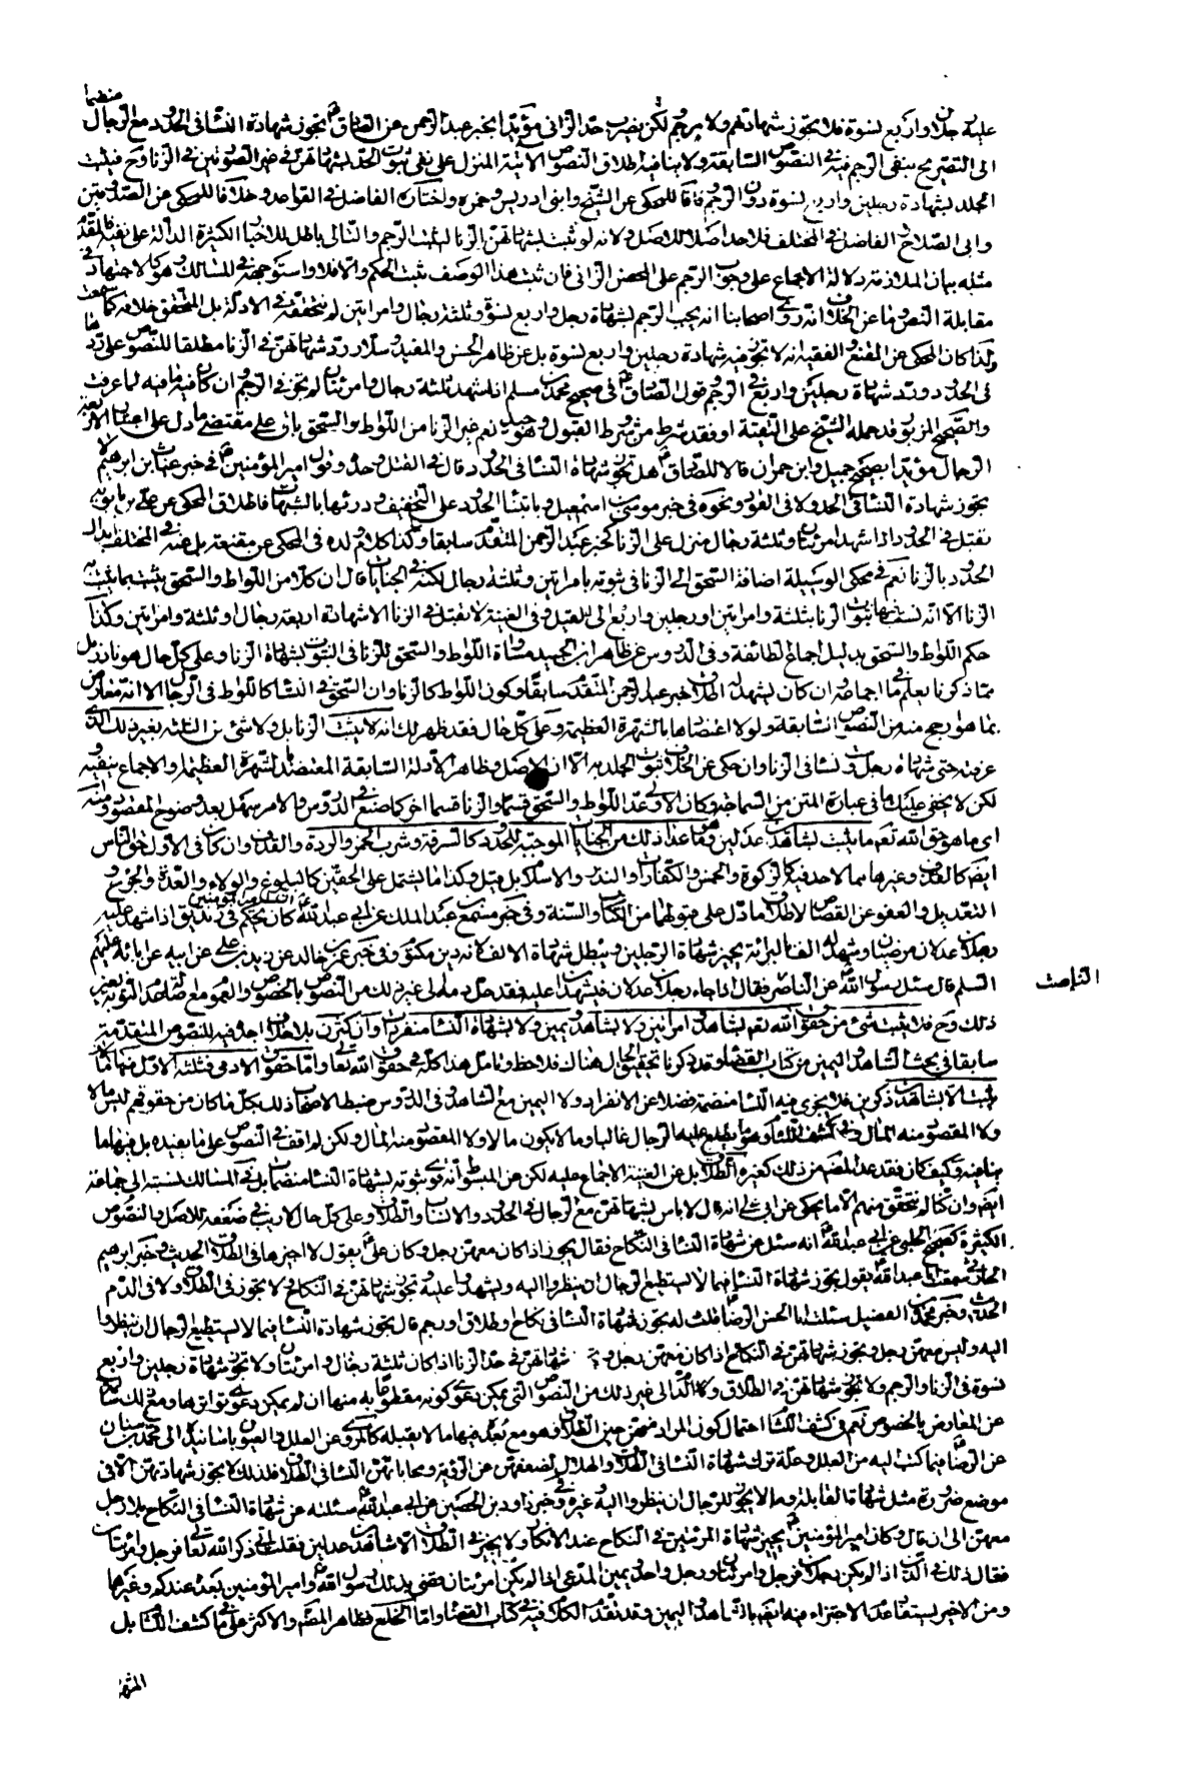 منضما
عليه رجلان واربع نسوة فلا يجوز شهادتهم ولا يرجم لكن يضرب حد الزاني مؤيدا بخبر عبد الرحمن عن الصادق ع تجوز شهادة النساء في الحدود مع الرجال
الى التصريح بنفى الرجم فيه في النصوص السابقة ولا ينافيه اطلاق النصوص الاتية المنزل على نفى ثبوت الحد بشهادتهن في غير الصورتين في الزنا وح فيثبت
الجلد بشهادة رجلين واربع نسوة دون الرجم وفاقا للمحكى عن الشيخ وابنى ادريس وحمزه واختاره الفاضل في القواعد وخلافا للمحكى عن الصدوقين
وابى الصلاح والفاضل في المختلف فلا حد اصلا للاصل ولانه لو ثبت بشهادتهن الزنا لثبت الرجم والتالى باطل للاخبار الكثيرة الدالة على نفيه فالمقدم
مثله بيان الملازمة دلالة الاجماع على وجوب الرجم على المحصن الزانى فان ثبت هذا الوصف ثبت الحكم والا فلا واستوجهه في المسالك وهو كالاجتهاد في
مقابلة النص وما عن الخلاف انه روى اصحابنا انه يجب الرجم بشهادة رجل واربع نسوة وثلثة رجال وامراتين لم نتحققه في الادلة بل المتحقق خلافه كما سمعت
وكذا ما كان المحكى عن المقنع والفقيه انه لا تجوز فيه شهادة رجلين واربع نسوة بل عن ظاهر الحسن والمفيد وسلار رد شهادتهن في الزنا مطلقا للنصوص على رد
في الحدود ورد شهادة رجلين واربع في الرجم قول الصادق ع في صحيح محمد بن مسلم اذا شهد ثلثة رجال وامرئتان لم تجز في الرجم وان كان فيه ما فيه لما عرفت
والصحيح المزبور قد حمله الشيخ على التقية او فقد شرط من شروط القبول وهو جيد نعم غير الزنا من اللواط والسحق باق على مقتضى ما دل على اعتبار الاربعة
الرجال مؤيدا بصحيح جميل وابن حمران قالا للصادق ع هل تجوز شهادة النساء في الحدود قال في القتل وحده وقول امير المؤمنين ع في خبر غياث بن ابرهيم لا
تجوز شهادة النساء في الحدود ولا في القود ونحوه في خبر موسى بن اسمعيل وبابتناء الحدود على التخفيف ودرئها بالشبهات فاطلاق المحكى عن على بن بابويه
تقبل في الحدود اذا شهد امرئتان وثلثة رجال منزل على الزنا كخبر عبد الرحمن المتقدم سابقا وكذا كلام ولده في المحكى عن مقنعه بل عنه في المختلف ابدال
الحدود بالزنا نعم في محكى الوسيلة اضافة السحق الى الزنا في ثبوته بامراتين وثلثة رجال لكنه في الجنايات قال ان كلا من اللواط والسحق يثبت بما يثبت به
الزنا الا انه نسب فيها ثبوت الزنا بثلثة وامراتين او رجلين واربع الى القيل وفي الغنية لا تقبل في الزنا الا شهادة اربعة رجال او ثلثة وامراتين وكذا
حكم اللواط والسحق بدليل اجماع الطائفة وفي الدروس عن ظاهر ابن الجنيد مساواة اللواط والسحق للزنا في الثبوت بشهادة الزنا وعلى كل حال هو نادر بل
مما ذكرنا يعلم ما في اجماعه وان كان يشهد له اطلاق خبر عبد الرحمن المتقدم سابقا وكون اللواط كالزنا وان السحق في النساء كاللواط في الرجال الا انه معارض
بما هو ارجح منه من النصوص السابقة ولو لاعتضادها بالشهرة العظيمة وعلى كل حال فقد ظهر لك انه لا يثبت الزنا بل ولا شئ من الثلثة بغير ذلك الذى
عرفته حتى شهادة رجل وست نساء في الزنا وان حكى عن الخلاف ثبوت الجلد به الا ان الاصل وظاهر الادلة السابقة المعتضد بالشهرة العظيمة والاجماع ينفيه و
لكن لا يخفى عليك ما في عبارة المتن من السماجة وكان الاولى عد اللواط والسحق قسما والزنا قسما اخر كما صنع في الدروس والامر سهل بعد وضوح المقصود ومنه
اى ما هو حق الله تعم ما يثبت بشاهدين عدلين وهو ما عدا ذلك من الجنايات الموجبة للحدود كالسرقة وشرب الخمر والردة والقذف وان كان في الاول حق الناس
ايضا كالقذف وغيرهما مما لا حد فيه كالزكوة والخمس والكفارات والنذر والاسلام بل قيل وكذا ما يشتمل على الحقين كالبلوغ والولاء والعدة والجرح و
التعديل والعفو عن القصاص لاطلاق ما دل على قبولهما من الكتاب والسنة وفي خبر مسمع بن عبد الملك عن ابى عبد الله ع ان امير المؤمنين ع كان يحكم في زنديق اذا شهد عليه
رجلان عدلان مرضيان وشهد له الف بالبرائة يجيز شهادة الرجلين ويبطل شهادة الالف لانه دين مكتوم وفي خبر عمرو بن خالد عن زيد بن على عن ابيه عن ابائه عليهم
السلم قال سئل رسول الله ص عن الساحر فقال اذا جاء رجلان عدلان فيشهدان عليه فقد حل دمه الى غير ذلك من النصوص بالخصوص والعموم مع
ذلك وح فلا يثبت شئ من حقوق الله تعم بشاهد وامرأتين ولا بشاهد ويمين ولا بشهادة النساء منفردات وان كثرن بلا خلاف اجده فيه للنصوص المتقدمة
سابقا في بحث الشاهد واليمين من كتاب القضاء وقد ذكرنا تحقيق الحال هناك فلاحظ وتامل هذا كله في حقوق الله تعالى واما حقوق الادمى فثلثة الاول منها ما لا
يثبت الا بشاهدين ذكرين فلا يجزى فيه النساء منضمة فضلا عن الانفراد ولا اليمين مع الشاهد وفي الدروس ضبط الاصحاب ذلك بكل ما كان من حقوقهم ليس مالا
ولا المقصود منه المال وفي كشف اللثام وهو ما يطلع عليه الرجال غالبا وما لا يكون مالا ولا المقصود منه المال ولكن لم اقف في النصوص على ما يفيده بل فيها ما
ينافيه وكيف كان فقد عد المصنف من ذلك كغيره الطلاق بل عن الغنية الاجماع عليه لكن عن المبسوط انه قوى ثبوته بشهادة النساء منضمات بل في المسالك نسبته الى جماعة
ايضا وان كنا لم نتحقق منهم الا ما يحكى عن ابى على انه قال لا باس بشهادتهن مع الرجال في الحدود والانساب والطلاق وعلى كل حال لا ريب في ضعفه للاصل والنصوص
الكثيرة كصحيح الحلبى عن ابى عبد الله ع انه سئل عن شهادة النساء في النكاح فقال يجوز اذا كان معهن رجل وكان على ع يقول لا اجيزها في الطلاق الحديث وخبر ابرهيم
الحارثى سمعت ابا عبد الله ع يقول يجوز شهادة النساء فيما لا يستطيع الرجال ان ينظروا اليه ويشهدوا عليه وتجوز شهادتهن في النكاح ولا تجوز في الطلاق ولا في الدم
الحديث وخبر محمد بن الفضيل سئلت ابا الحسن الرضا ع قلت له تجوز شهادة النساء في نكاح او طلاق او رجم قال تجوز شهادة النساء فيما لا يستطيع الرجال ان ينظروا
اليه وليس معهن رجل وتجوز شهادتهن في النكاح اذا كان معهن رجل وتجوز شهادتهن في حد الزنا اذا كان ثلثة رجال وامرئتان ولا تجوز شهادة رجلين واربع
نسوة في الزنا والرجم ولا تجوز شهادتهن في الطلاق ولا في الدم الى غير ذلك من النصوص التى يمكن دعوى كونه مقطوعا به منها ان لم يمكن دعوى تواترها ومع ذلك سالم
عن المعارض بالخصوص نعم في كشف اللثام احتمال كون المراد شهادتهن حين الطلاق وهو مع بُعده فيها ما لا يقبله كالمروى عن العلل والعيون باسانيده الى محمد بن سنان
عن الرضا ع فيما كتب اليه من العلل وعلة ترك شهادة النساء في الطلاق والهلال لضعفهن عن الرؤية ومحاباتهن النساء في الطلاق فلذلك لا يجوز شهادتهن الا في
موضع ضرورة مثل شهادة القابلة وما لا يجوز للرجال ان ينظروا اليه وغيره وفي خبر داود بن الحصين عن ابى عبد الله ع سئلته عن شهادة النساء في النكاح بلا رجل
معهن الى ان قال وكان امير المؤمنين ع يجيز شهادة المرئتين في النكاح عند الانكار ولا يجيز في الطلاق الا شاهدين عدلين فقلت فانى ذكر الله تعم فرجل وامرئتان
فقال ذلك في الدين اذا لم يكن رجلان فرجل وامرئتان ورجل واحد ويمين المدعى اذا لم يكن امرئتان قضى بذلك رسول الله ص وامير المؤمنين بعده عندكم وغيرها
ومن الاخير يستفاد عدم الاجتزاء فيه ايضا بالشاهد واليمين وقد تقدم الكلام فيه في كتاب القضاء واما الخلع فظاهر المصنف والاكثر على ما في كشف اللثام بل